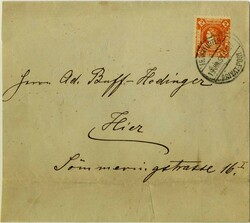 Herrn Ad. Buff-Hedinger
Hier
Sömmeringstrasse 16 I